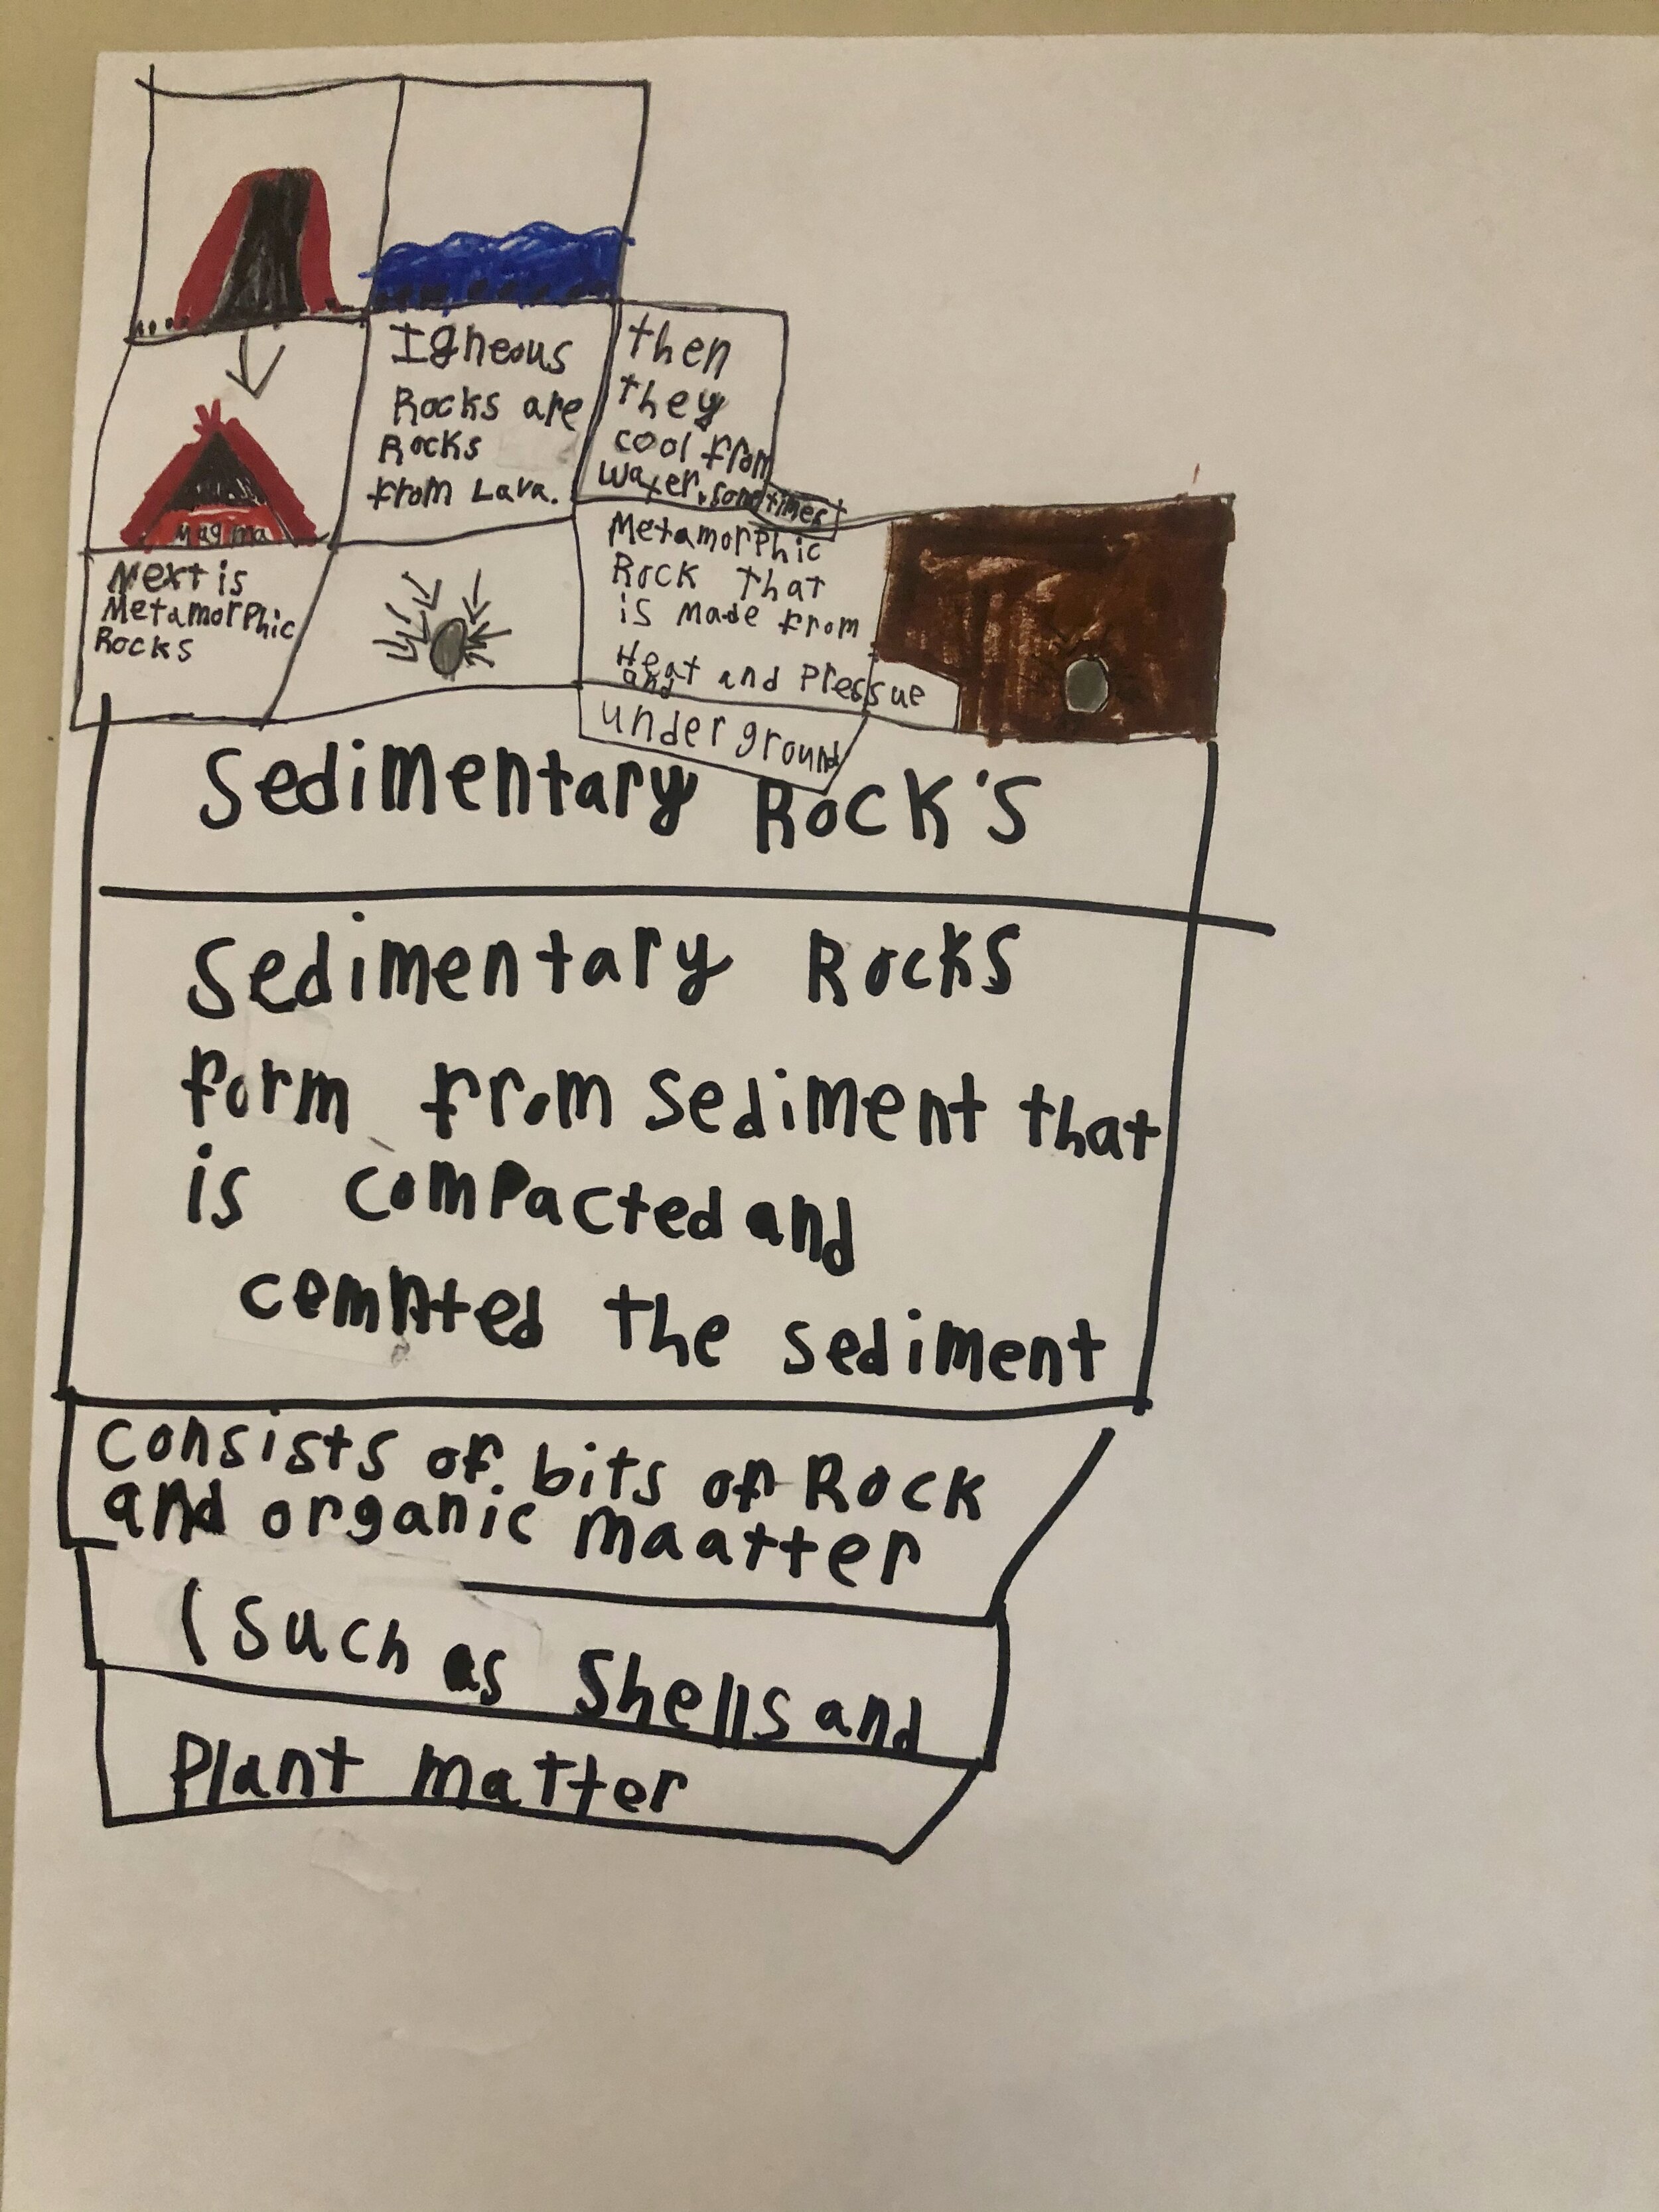 Igneous
Rocks are
Rocks
from Lava.
then
they
cool from
water, sometimes
Magma
Next is
Metamorphic
Rocks
Metamorphic
Rock that
is made from
Heat and Pressue
and
underground
Sedimentary Rock's
Sedimentary Rocks
form from sediment that
is compacted and
cemnted the sediment
consists of bits of Rock
and organic maatter
(such as Shells and
Plant matter